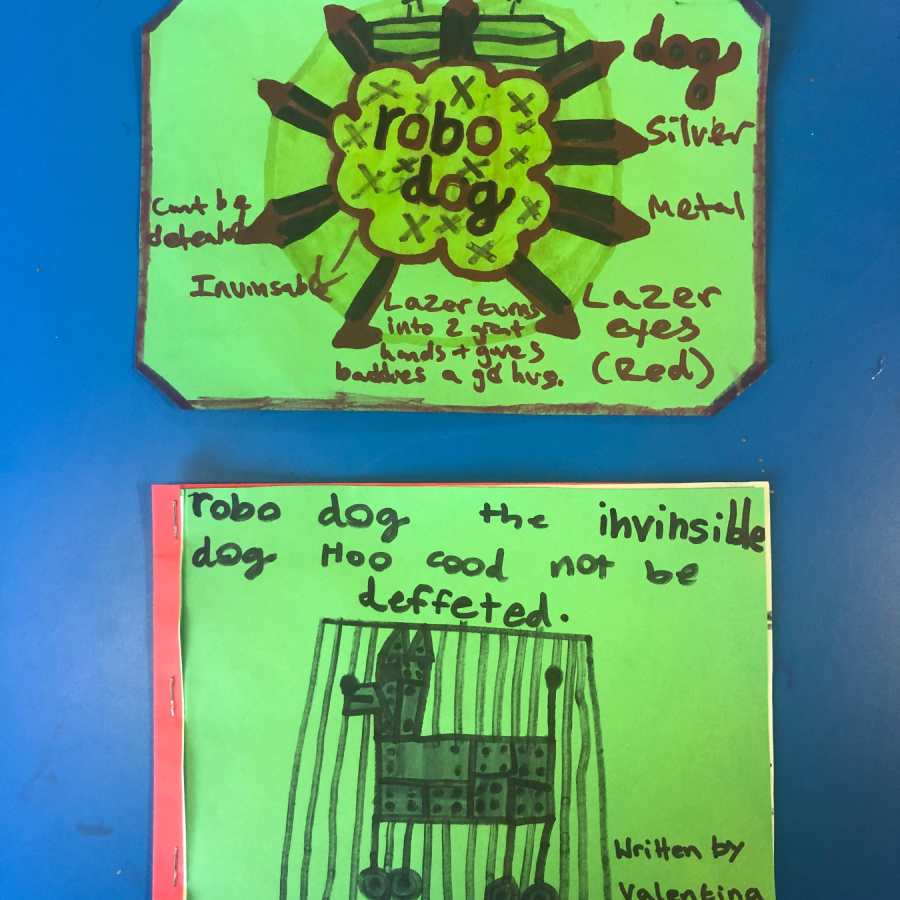 dog
robo
dog
Silver
Metal
Lazer
eyes
(Red)
Cant be
Invinsable
Lazer turns
into 2 giant
hands + gives
baddies a gd hug.
robo dog the invinsible
dog Hoo cood not be
deffeted.
Written by
Valentina